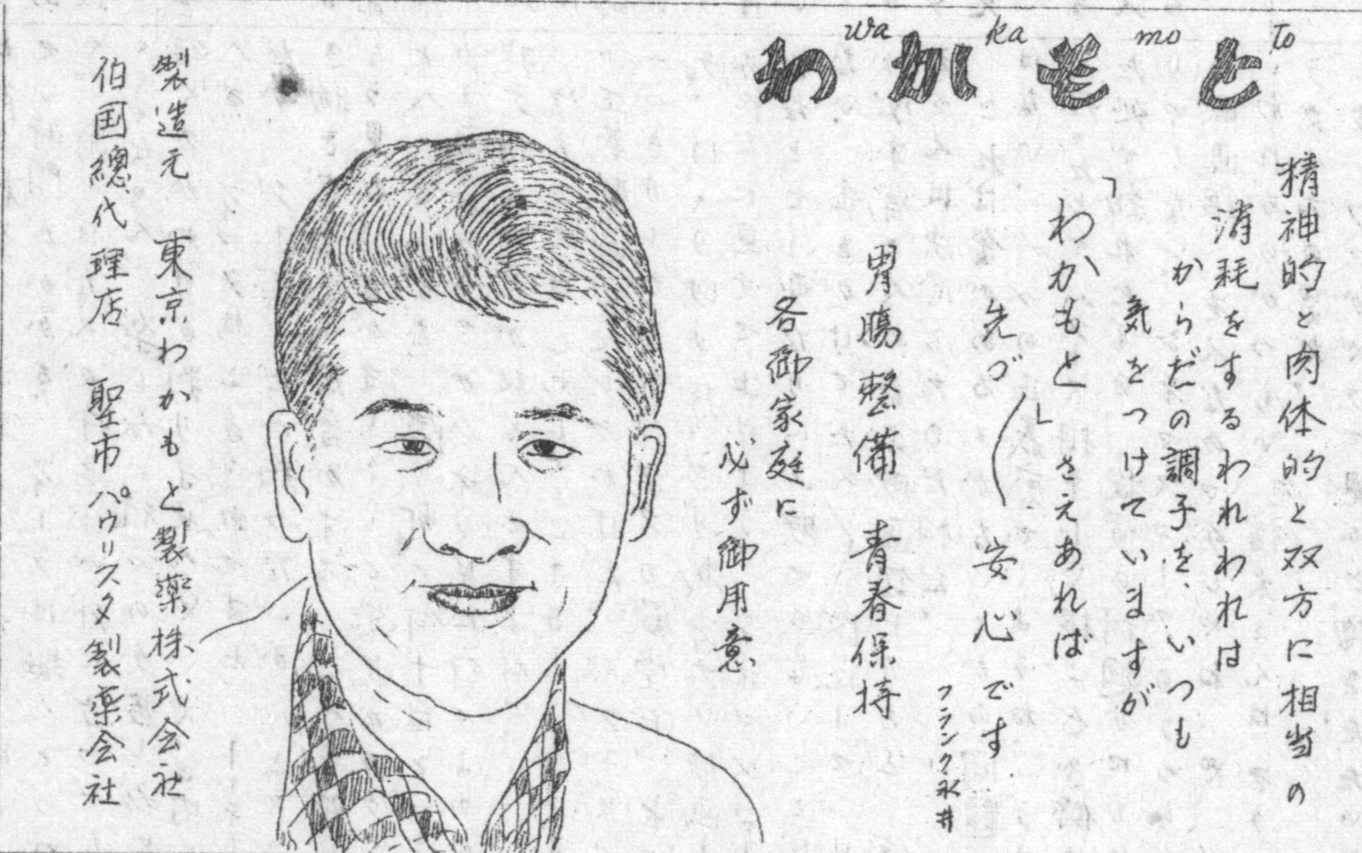 わかもと
wa ka mo to
精神的と肉体的と双方に相当の
消耗をするわれわれは
からだの調子を、いつも
気をつけていますが
「わかもと」さえあれば
先づ〱安心です
フランク永井
胃腸整備 青春保持
各御家庭に
必ず御用意
製造元 東京わかもと製薬株式会社
伯国總代理店 聖市パウリスタ製薬会社